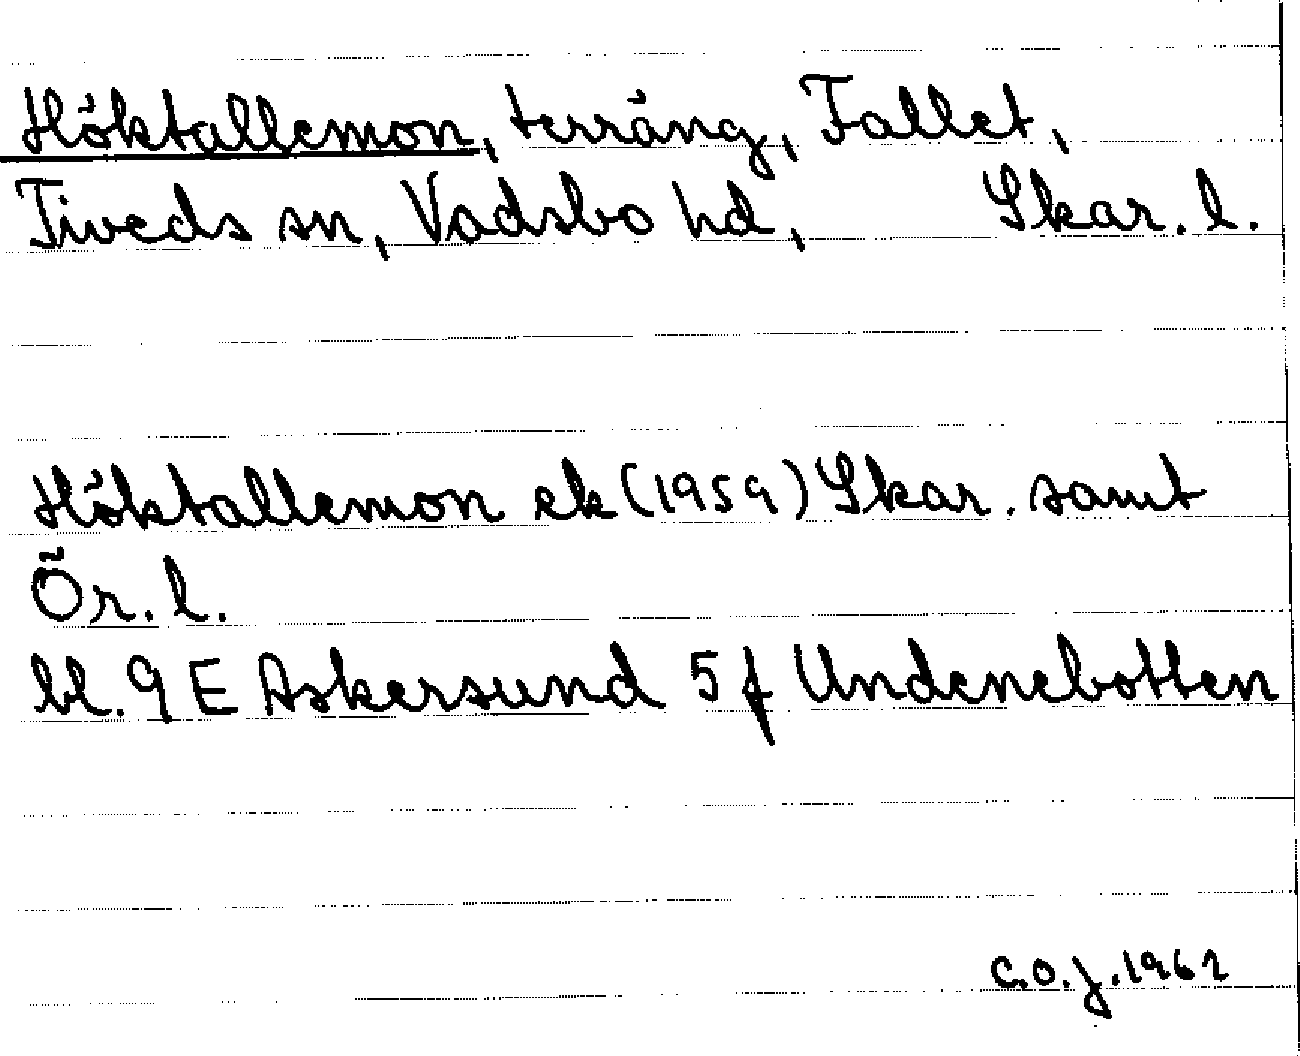 Höktallemon, terräng, Fallet,
Tiveds sn, Vadsbo hd, Skar. l.
Höktallemon ek (1959) Skar. samt
Ör. l.
bl. 9 E Askersund 5 f Undenebotten
C.O.J. 1962